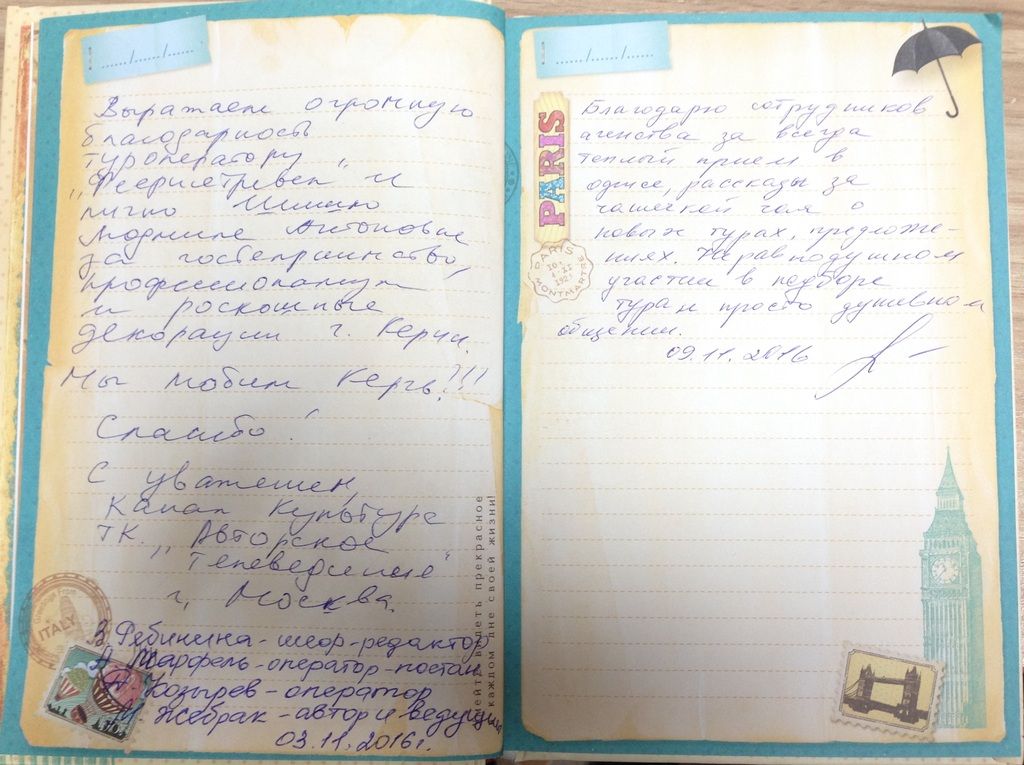 ....../....../......
Выражаем огромную
благодарность
туроператору „
„Феериятревел" и
лично
Людмиле Антоновне
за гостеприимство,
профессионализм
и роскошные
декорации г. Керчи.
Мы любим Керчь!!!
Спасибо!
С уважением,
Канал Культура
ТК „Авторское
Телевидение"
г. Москва.
В. Рябинина - шеф-редактор
А. Марфель - оператор-постан
Н. Козырев - оператор
И. Жебрак - автор и ведущий
03.11.2016г.
умейте видеть прекрасное
в каждом дне своей жизни!
ITALY
....../....../......
PARIS
Благодарю сотрудников
агенства за всегда
теплый прием в
офисе, рассказы за
чашечкой чая о
новых турах, предложе-
ниях. Неравнодушном
участии в подборе
тура и просто душевном
общении.
09.11.2016
PARIS
MONTMARTRE